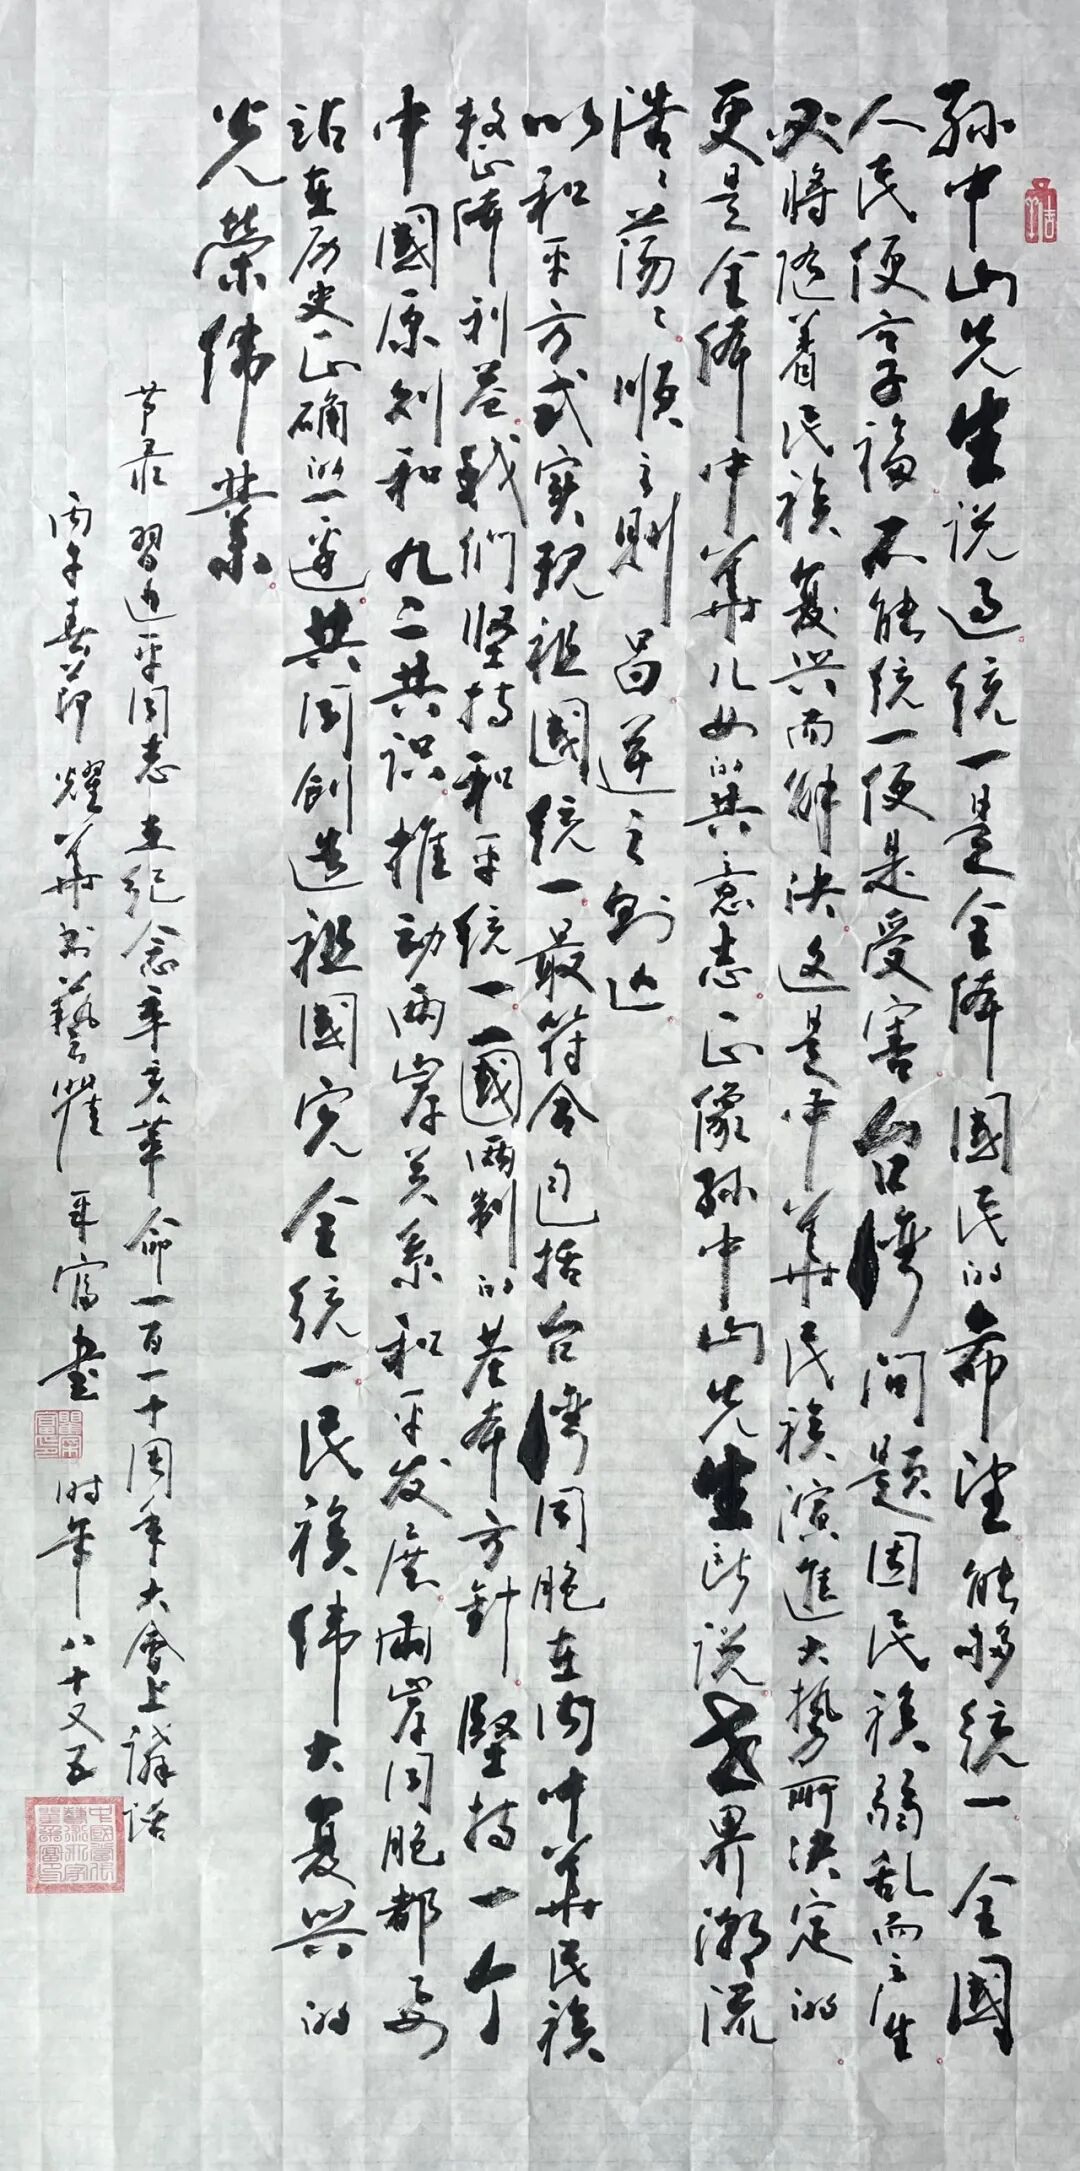 孙中山先生说过统一是全体國民的希望能够统一全國
人民便享福不能统一便是受害台湾问题因民族弱乱而产生
必将随着民族复兴而解决这是中華民族演進大势所决定的
更是全体中華儿女的共意志正像孙中山先生所说世界潮流
浩浩荡荡順之則昌逆之則亡
以和平方式实现祖國统一最符合包括台湾同胞在内中華民族
整体利益我们坚持和平统一一國两制的基本方針堅持一个
中國原则和九二共识推动两岸关系和平发展两岸同胞都要
站在历史正确的一边共同创造祖國完全统一民族伟大复兴的
光荣伟業
节录習近平同志在纪念辛亥革命一百一十周年大会上講话
丙午春節耀華书藝 年富書 时年八十又五